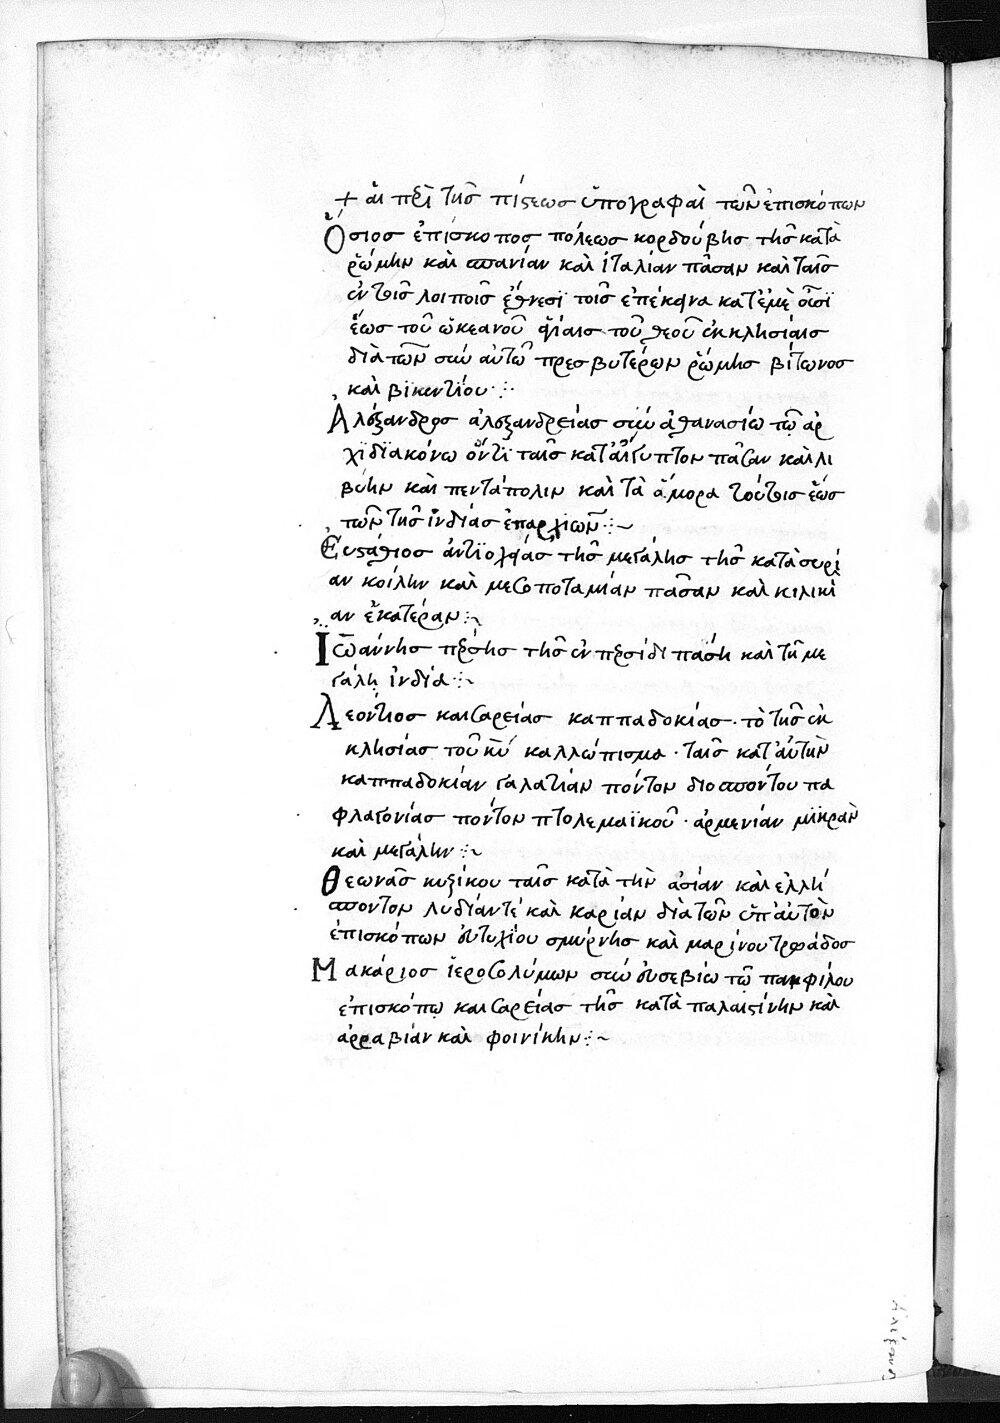 + αἱ πρὶ τῆσ πίστεωσ ὑπογραφαὶ τῶν ἐπισκόπων
Ὅσιοσ ἐπίσκοπος πόλεωσ κορδούβησ τῆσ κατὰ
ῥώμην καὶ σπανίαν καὶ ἰταλίαν πᾶσαν καὶ ταῖσ
ἐν τοῖσ λοιποῖσ ἔθνεσϊ τοῖσ ἐπέκεινα κατ ἐμὲ οὖσϊ
ἕωσ τοῦ ὠκεανοῦ ἁγίαισ τοῦ θεοῦ ἐκκλησίαισ
διὰ τῶν σὺν αὐτῶ πρεσβυτέρων ῥώμησ βίτωνοσ
καὶ βϊκεντίου
Ἀλέξανδροσ ἀλεξανδρείασ σὺν ἀθανασίω τῶ ἀρ
χϊδϊακόνω ὄντϊ ταῖσ κατ αἴγυπτον πᾶσαν καὶ λι
βύην καὶ πεντάπολιν καὶ τὰ ὅμορα τούτοισ ἕωσ
τῶν τῆσ ἰνδίασ ἐπαρχιῶν
Εὐστάθιοσ ἀντϊοχείασ τῆσ μεγάλησ τῆσ κατὰ συρί
αν κοίλην καὶ μεσοποταμίαν πᾶσαν καὶ κιλικί
αν ἑκατέραν
Ἰωάννησ πέρσησ τῆσ ἐν περσίδι πάση καὶ τῆ με
γάλη ἰνδία
Λεόντιοσ καισαρείασ καππαδοκίασ · τὸ τῆσ ἐκ
κλησίασ τοῦ κῦ καλλώπισμα · ταῖσ κατ αὐτὴν
καππαδοκίαν γαλατίαν πόντον διοσπόντου πα
φλαγονίασ πόντον πτολεμαϊκοῦ · ἀρμενίαν μϊκρὰν
καὶ μεγάλην
Θεωνᾶσ κυζίκου ταῖσ κατὰ τὴν ἀσίαν καὶ ἑλλή
σποντον λυδίαν τὲ καὶ καρίαν διὰ τῶν ὑπ αὐτὸν
ἐπισκόπων εὐτυχίου σμύρνησ καὶ μαρίνου τρωάδοσ
Μακάριοσ ἱεροσολύμων σὺν εὐσεβίω τῶ παμφίλου
ἐπισκόπω καισαρείασ τῆσ κατὰ παλαιστίνην καὶ
ἀρραβίαν καὶ φοινίκην